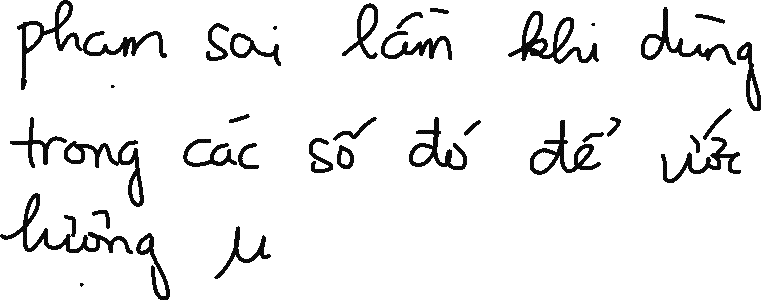 phạm sai lầm khi dùng
trong các số đó để ước
lượng μ